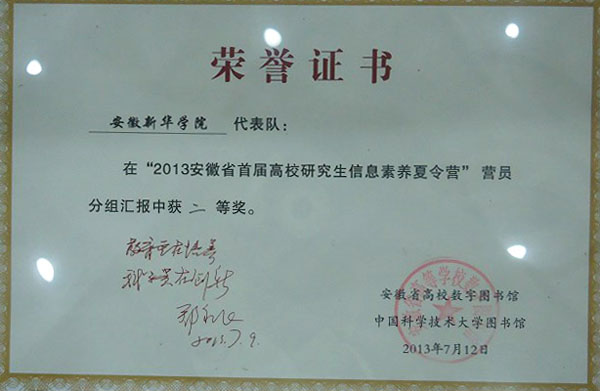 荣誉证书
安徽新华学院 代表队：
在“2013安徽省首届高校研究生信息素养夏令营”营员
分组汇报中获 二 等奖。
教育重在培养
科学贵在创新
安徽省高校数字图书馆
中国科学技术大学图书馆
2013年7月12日